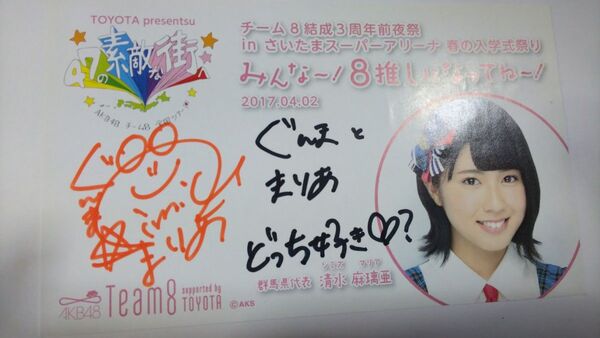 TOYOTA presents
47の素敵な街へ
AKB48 チーム8 全国ツアー
チーム8結成3周年前夜祭
in さいたまスーパーアリーナ 春の入学式祭り
みんな〜！8推しになってね〜！
2017.04.02
ぐんま
まりあ
ぐんまと
まりあ
どっちゅき♡?
シミズ マリア
群馬県代表 清水 麻璃亜
AKB48 Team8 supported by TOYOTA
©AKS